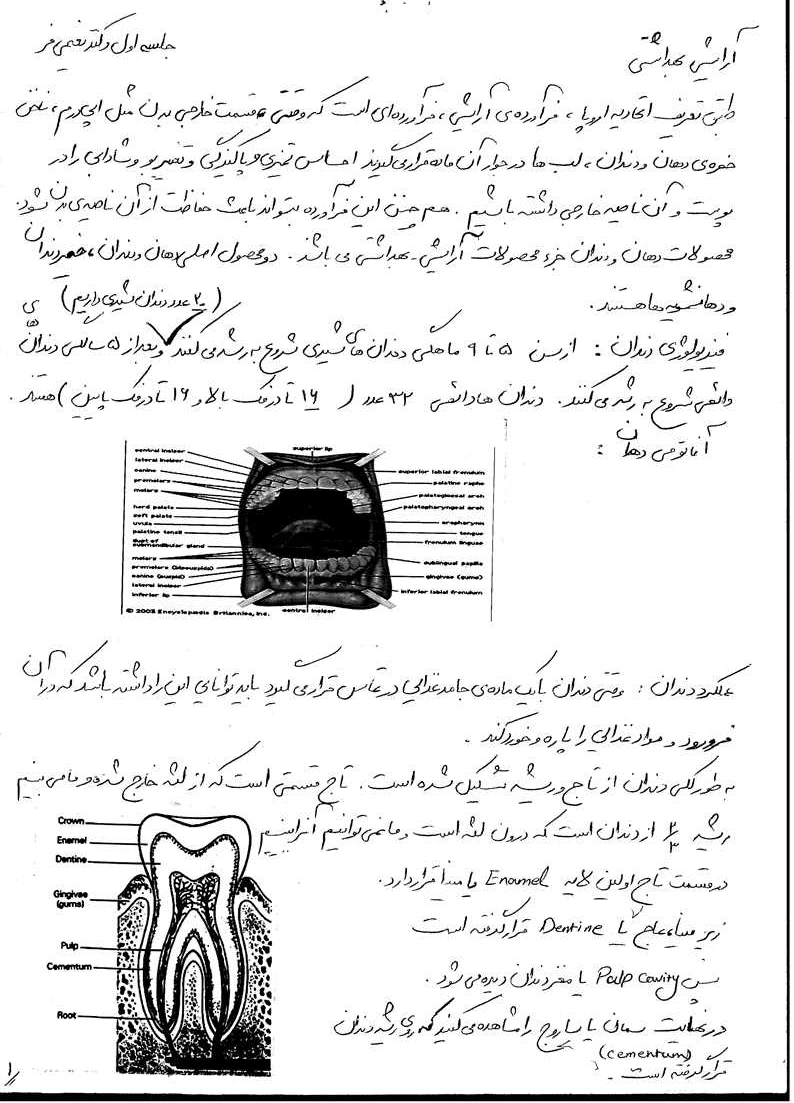 جلسه اول دکتر نعیمی فر
آرایشی بهداشتی
طبق تعریف اتحادیه اروپا، فرآورده ی آرایشی، فرآورده ای است که وقتی قسمت خارجی بدن مثل اپی درم،
حفره ی دهان و دندان، لب ها در جوار آن ماده قرار می گیرند احساس تمیزی و پاکیزگی و تغییر بو و شادابی را در
پوست و آن ناحیه خارجی داشته باشیم. هم چنین این فرآورده بتواند باعث حفاظت از آن ناحیه ی بدن شود.
محصولات دهان و دندان جزء محصولات آرایشی - بهداشتی می باشد. دو محصول اصلی دهان و دندان، خمیردندان
و دهانشویه ها هستند.
(۲۰ عدد دندان شیری داریم)
فیزیولوژی دندان: از سن ۵ تا ۹ ماهگی دندان های شیری شروع به رشد می کنند و بعد از ۵ سالگی دندان های
دائمی شروع به رشد می کنند. دندان ها دائمی ۳۲ عدد (۱۶ تا در فک بالا و ۱۶ تا در فک پایین) هستند.
آناتومی دهان:
central incisor
lateral incisor
canine
premolars
molars
hard palate
soft palate
uvula
palatine tonsil
duct of
submandibular gland
molars
premolars (bicuspids)
canine (cuspid)
lateral incisor
inferior lip
superior lip
superior labial frenulum
palatine raphe
palatoglossal arch
palatopharyngeal arch
oropharynx
tongue
frenulum linguae
sublingual papilla
gingivae (gums)
inferior labial frenulum
© 2003 Encyclopædia Britannica, Inc.
central incisor
عملکرد دندان: وقتی دندان با یک ماده ی جامد غذایی در تماس قرار می گیرد باید توانایی این را داشته باشد که در آن
فرو رود و مواد غذایی را پاره و خورد کند.
به طور کلی دندان از تاج و ریشه تشکیل شده است. تاج قسمتی است که از لثه خارج شده و ما می بینیم
ریشه ۲/۳ از دندان است که درون لثه است و ما نمی توانیم آنرا ببینیم
در قسمت تاج اولین لایه Enamel یا مینا قرار دارد.
زیر مینا، عاج یا Dentine قرار گرفته است
سپس Pulp cavity یا مغز دندان دیده می شود.
در نهایت سمان یا ساروج را مشاهده می کنید که روی ریشه دندان
(cementum)
قرار گرفته است.
Crown
Enamel
Dentine
Gingivae
(gums)
Pulp
Cementum
Root
۱